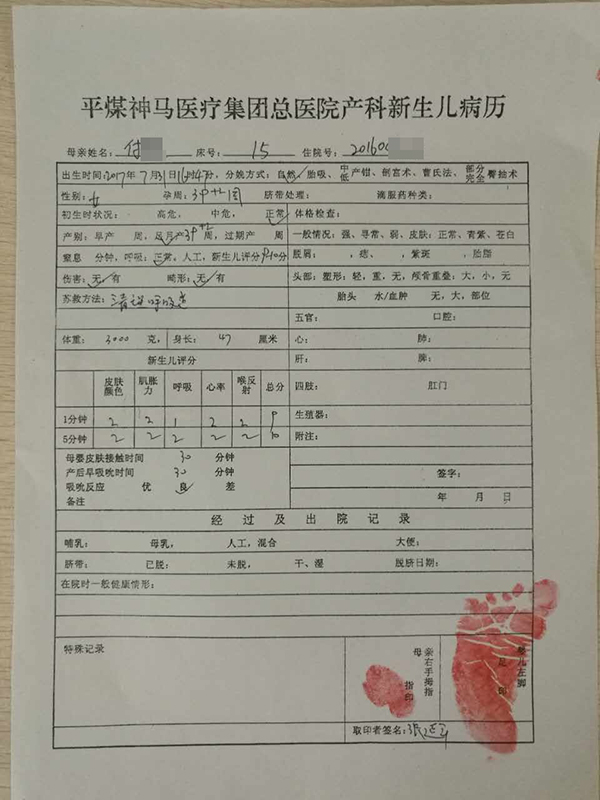 平煤神马医疗集团总医院产科新生儿病历
母亲姓名: 付 床号: 15 住院号: 20160
出生时间:2017年 7月31日16时47分, 分娩方式: 自然/ 胎吸、中低产钳、剖宫术、曹氏法、部分完全臀抽术
性别: 女 孕周: 周 脐带处理: 滴眼药种类:
初生时状况: 高危, 中危, 正常 体格检查:
产别: 早产 周, 足月产 周, 过期产 周 一般情况: 强、寻常、弱、皮肤: 正常、青紫、苍白
窒息 分钟, 呼吸: 正常, 人工, 新生儿评分 分 胶屑 , 痣、 , 紫斑 , 胎脂
伤害: 无, 有 畸形: 无, 有 头部: 塑形: 轻, 重, 无, 颅骨重叠: 大, 小, 无
苏救方法: 清理呼吸道 胎头 水/血肿 无, 大, 部位
五官: 口腔:
体重: 3000 克, 身长: 47 厘米 心: 肺:
新生儿评分 肝: 脾:
皮肤颜色 肌胀力 呼吸 心率 喉反射 总分 四肢: 肛门
1分钟 2 2 1 2 2 9 生殖器:
5分钟 2 2 2 2 2 10 附注:
母婴皮肤接触时间 30 分钟
产后早吸吮时间 30 分钟 签字:
吸吮反应 优 良 差 年 月 日
备注
经过及出院记录
哺乳: 母乳, 人工, 混合 大便:
脐带: 已脱: 未脱, 干、湿 脱脐日期:
在院时一般健康情形:
特殊记录
母亲右手拇指指印
婴儿左脚足印
取印者签名: